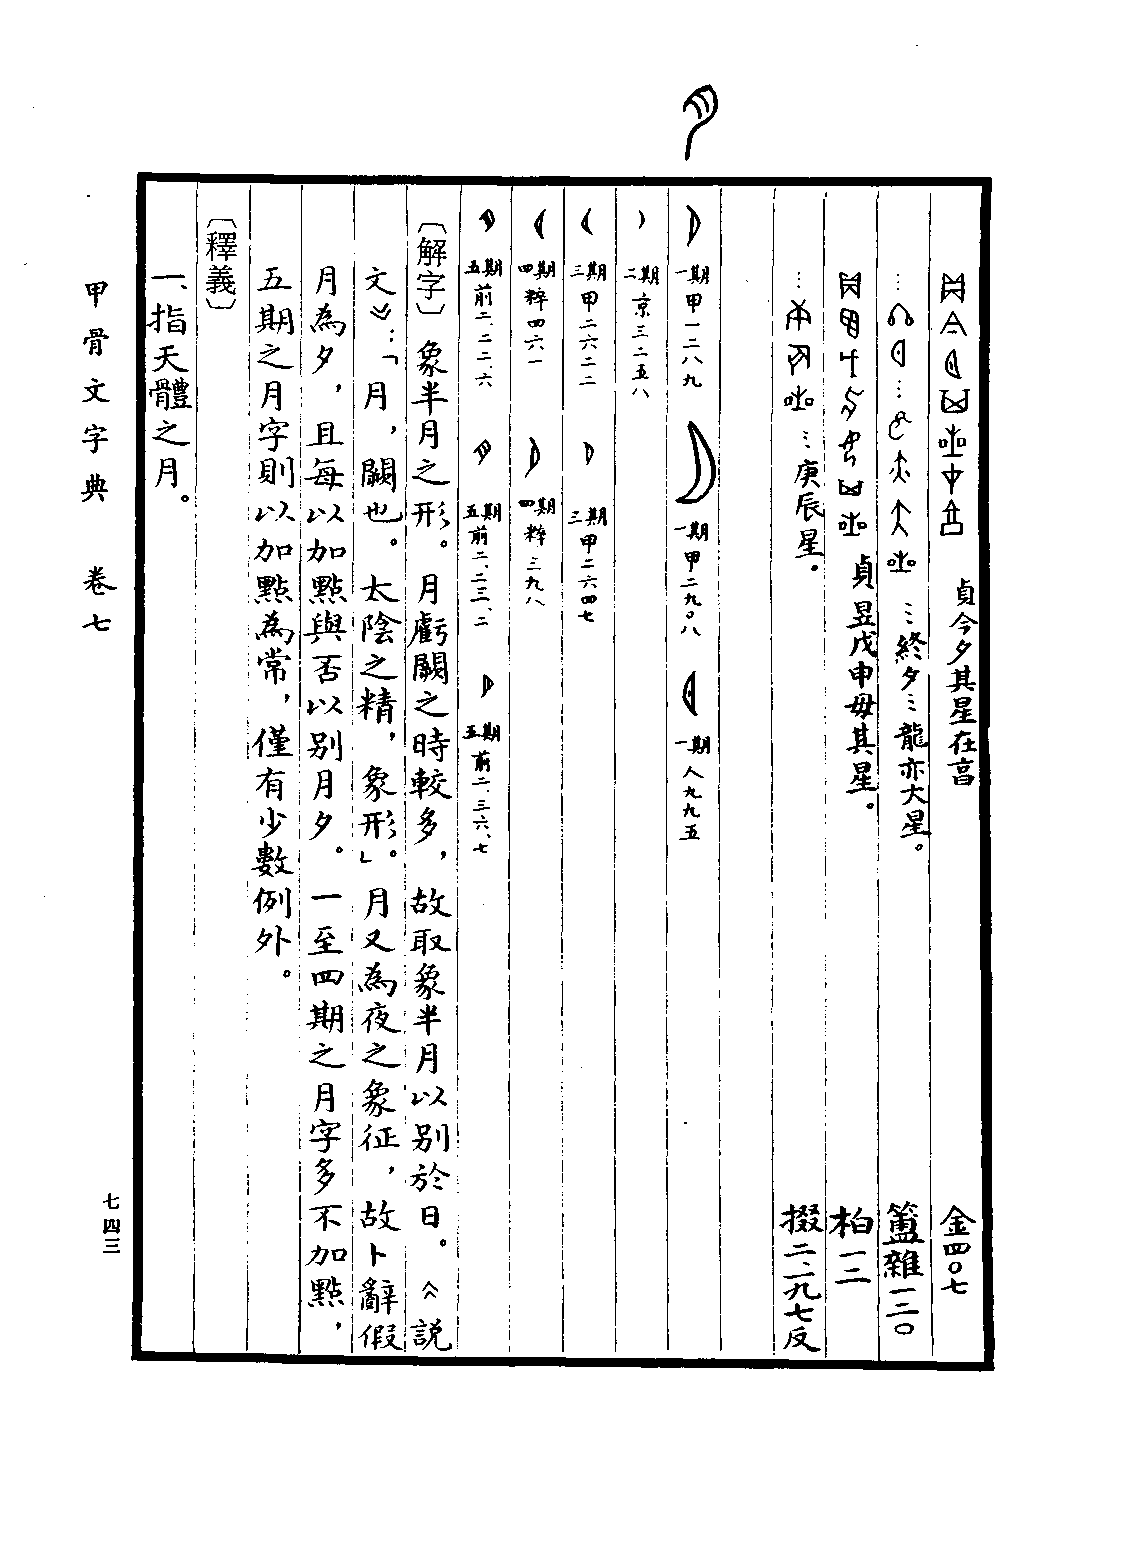 貞今夕其星在𣆪 金四〇七
…終夕…龍亦大星。 簠雜一二〇
貞昱戊申毋其星。 柏一二
…庚辰星。 掇二.一九七反
一期甲一二八九 一期甲二九〇八 一期人九九五
二期京三二五八
三期甲二六二二 三期甲二六四七
四期粹四六一 四期粹三九八
五期前二.二二.六 五期前二.二三.二 五期前二.三六.七
〔解字〕象半月之形。月虧闕之時較多，故取象半月以別於日。《說
文》：「月，闕也。太陰之精，象形」。月又為夜之象征，故卜辭假
月為夕，且每以加點與否以別月夕。一至四期之月字多不加點，
五期之月字則以加點為常，僅有少數例外。
〔釋義〕
一、指天體之月。
甲骨文字典 卷七
七四三